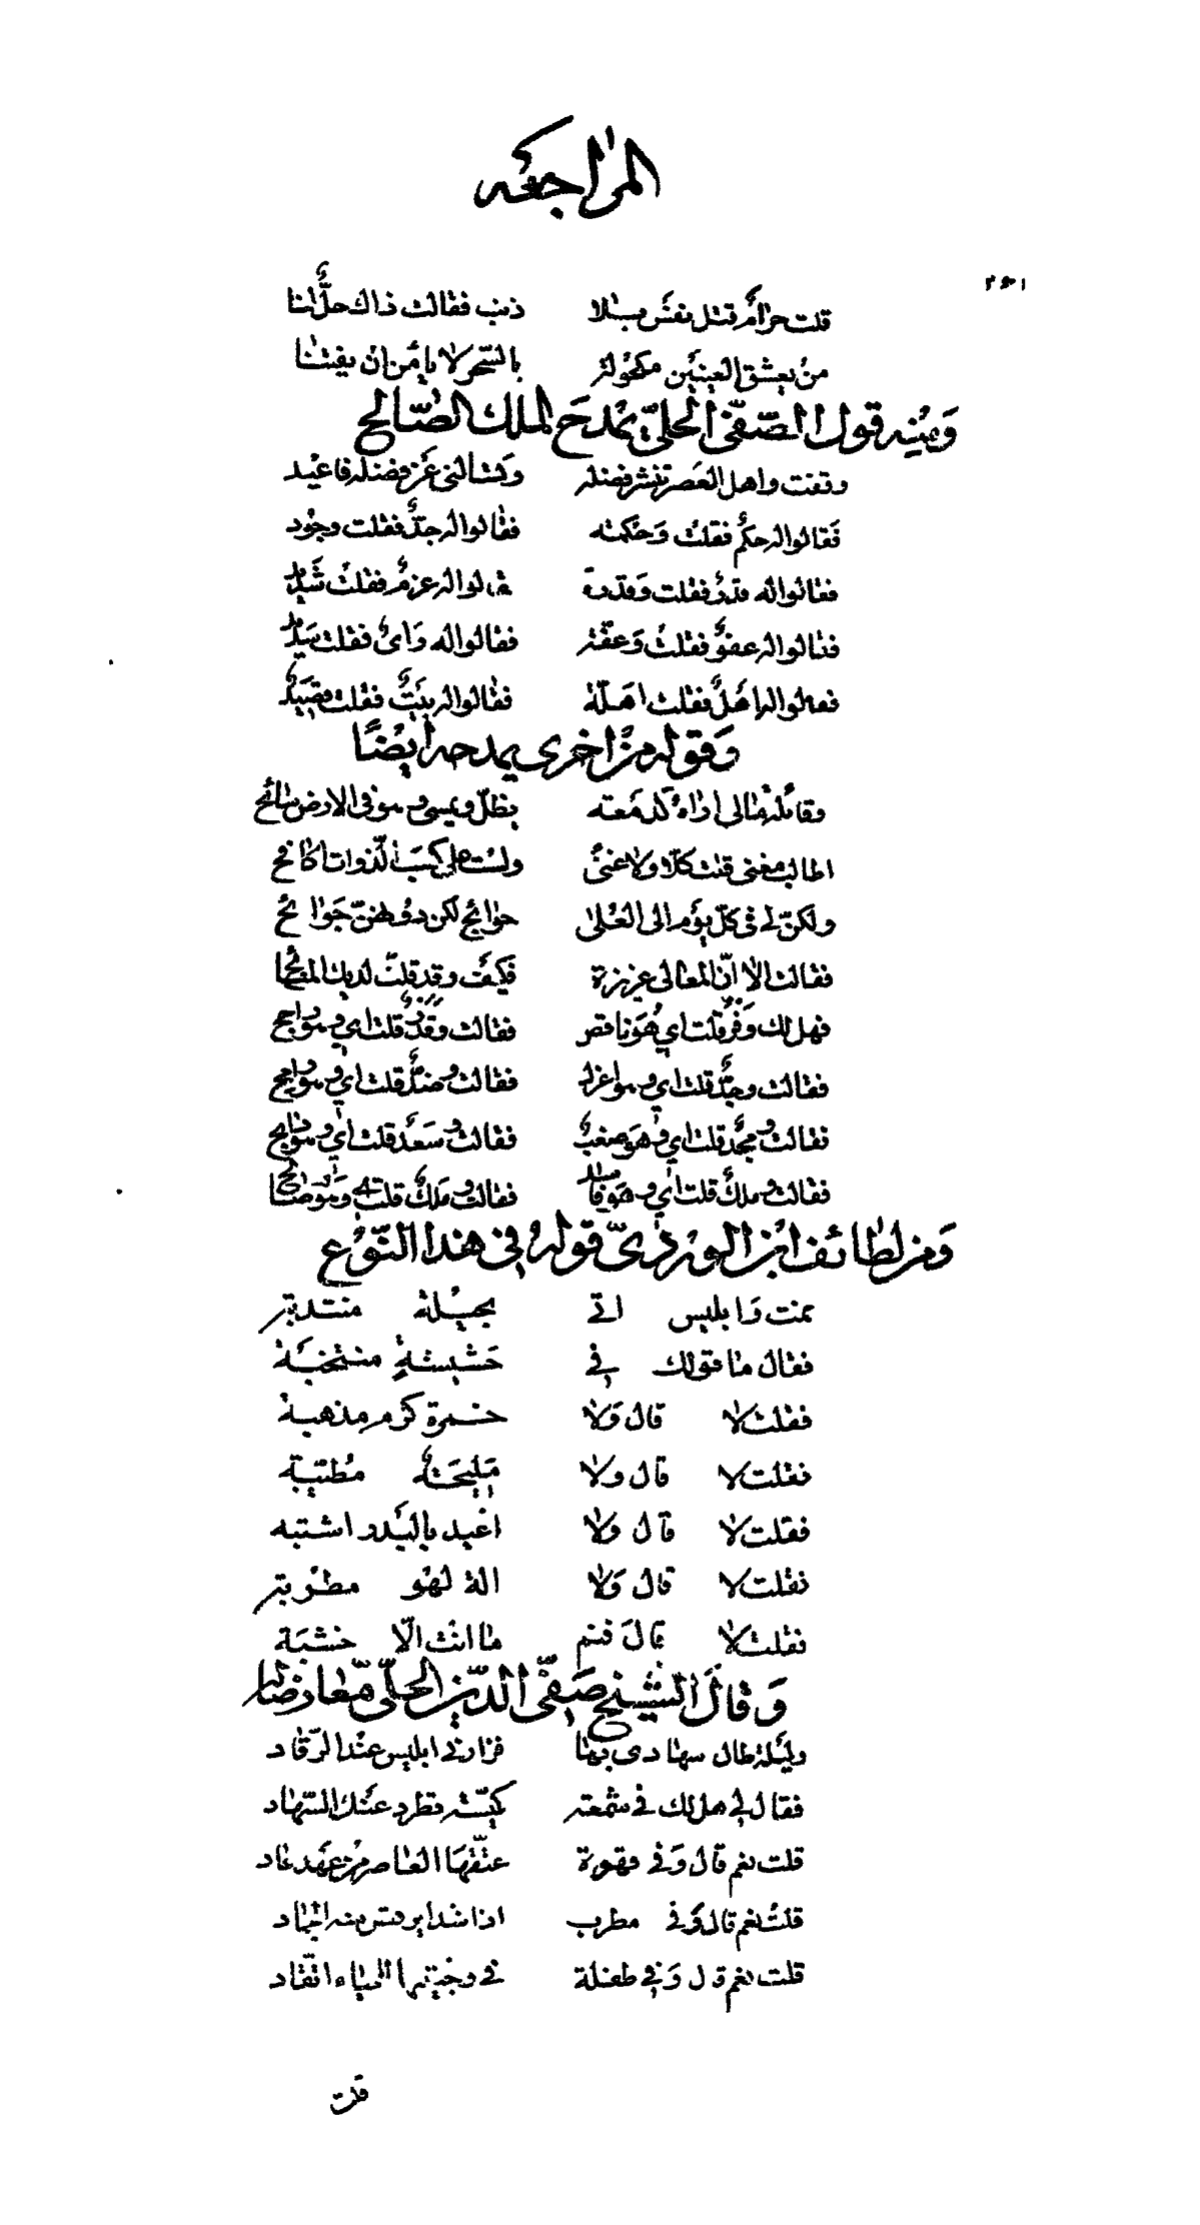 المراجعه
٢٤١
قلت حرام قتل نفس بلا ذنب فقالت ذاك حل لنا
من يعشق العينين مكحولة بالسحر لا يأمن ان يفتنا
ومنه قول الصفى الحلي يمدح الملك الصالح
وقفت واهل العصر تنشر فضله وتسالني عن فضله فاعيد
فقالوا له حكم فقلت وحكمته فقالوا له جد فقلت وجود
فقالوا له قدر فقلت وقدرة فقالوا له عزم فقلت شديد
فقالوا له عفو فقلت وعفة فقالوا له رائ فقلت سديد
فقالوا له اهل فقلت اهلة فقالوا له بيت فقلت قصيد
وقوله من اخرى يمدحه ايضًا
وقائلة مالى اراه كدمعته يظل ويمسى وهو فى الارض سائح
اطالب مغنى قلت كلا ولا غنى ولست على كسب اللذوات اكافح
ولكن لى فى كل يوم الى العلى حوائج لكن دونهن جوائح
فقالت الا ان المعالى عزيزة فكيف وقد قلت لديك المنائح
فهل لك وفر قلت اي وهو ناقص فقالت وقدر قلت اي وهو راجح
فقالت وجد قلت اي وهو اعزل فقالت وضد قلت اي وهو رامح
فقالت ومجد قلت اي وهو متعب فقالت وسعد قلت اي وهو ذابح
فقالت وملك قلت اي وهو فاسد فقالت وملك قلت وهو صالح
ومن لطائف ابن الوردى قوله فى هذا النوع
نمت وابليس اتى بحيلة منتدبة
فقال ما قولك فى حشيشة منتخبة
فقلت لا قال ولا خمرة كرم مذهبة
فقلت لا قال ولا مليحة مطيبة
فقلت لا قال ولا اغيد بالبدر اشتبه
فقلت لا قال ولا الة لهو مطربة
فقلت لا قال فنم ما انت الا خشبة
وقال الشيخ صفى الدين الحلى معارضا له
وليلة طال سهادى بها فزارنى ابليس عند الرقاد
فقال لى هل لك فى شمعة كبسة تطرد عنك السهاد
قلت نعم قال وفى قهوة عتقها العاصر من عهد عاد
قلت نعم قال وفى مطرب اذا شدا يرقص منه الجماد
قلت نعم قال وفى طفلة فى وجنتيها للحياء اتقاد
قلت